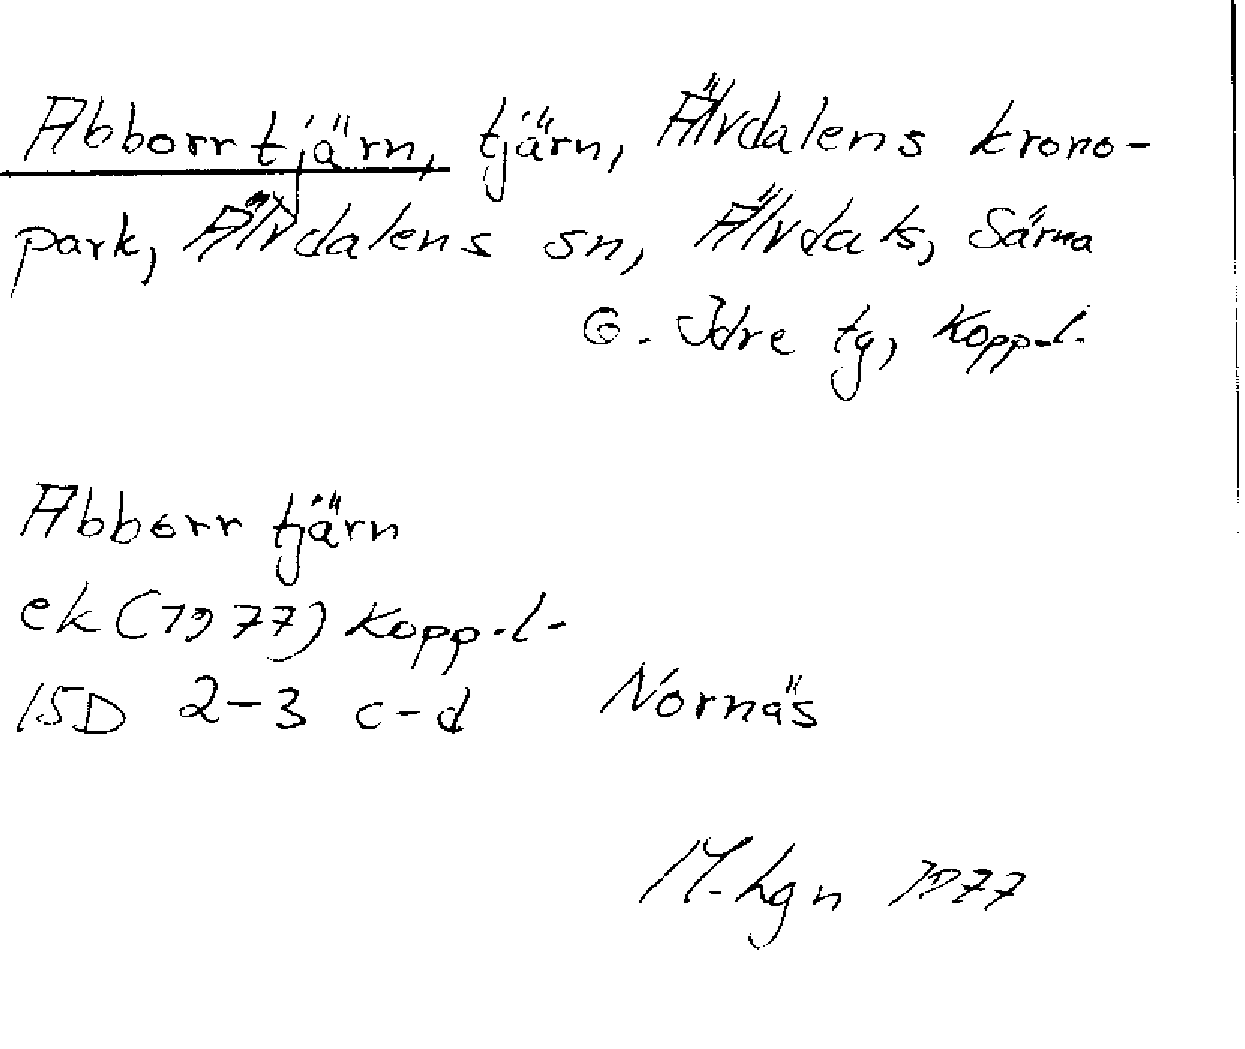 Abborrtjärn, tjärn, Älvdalens krono-
park, Älvdalens sn, Älvdals, Särna
o. Idre tg, Kopp.l.
Abborr tjärn
ek (1977) Kopp.l.
15D 2-3 c-d Nornäs
M.hgn 1977